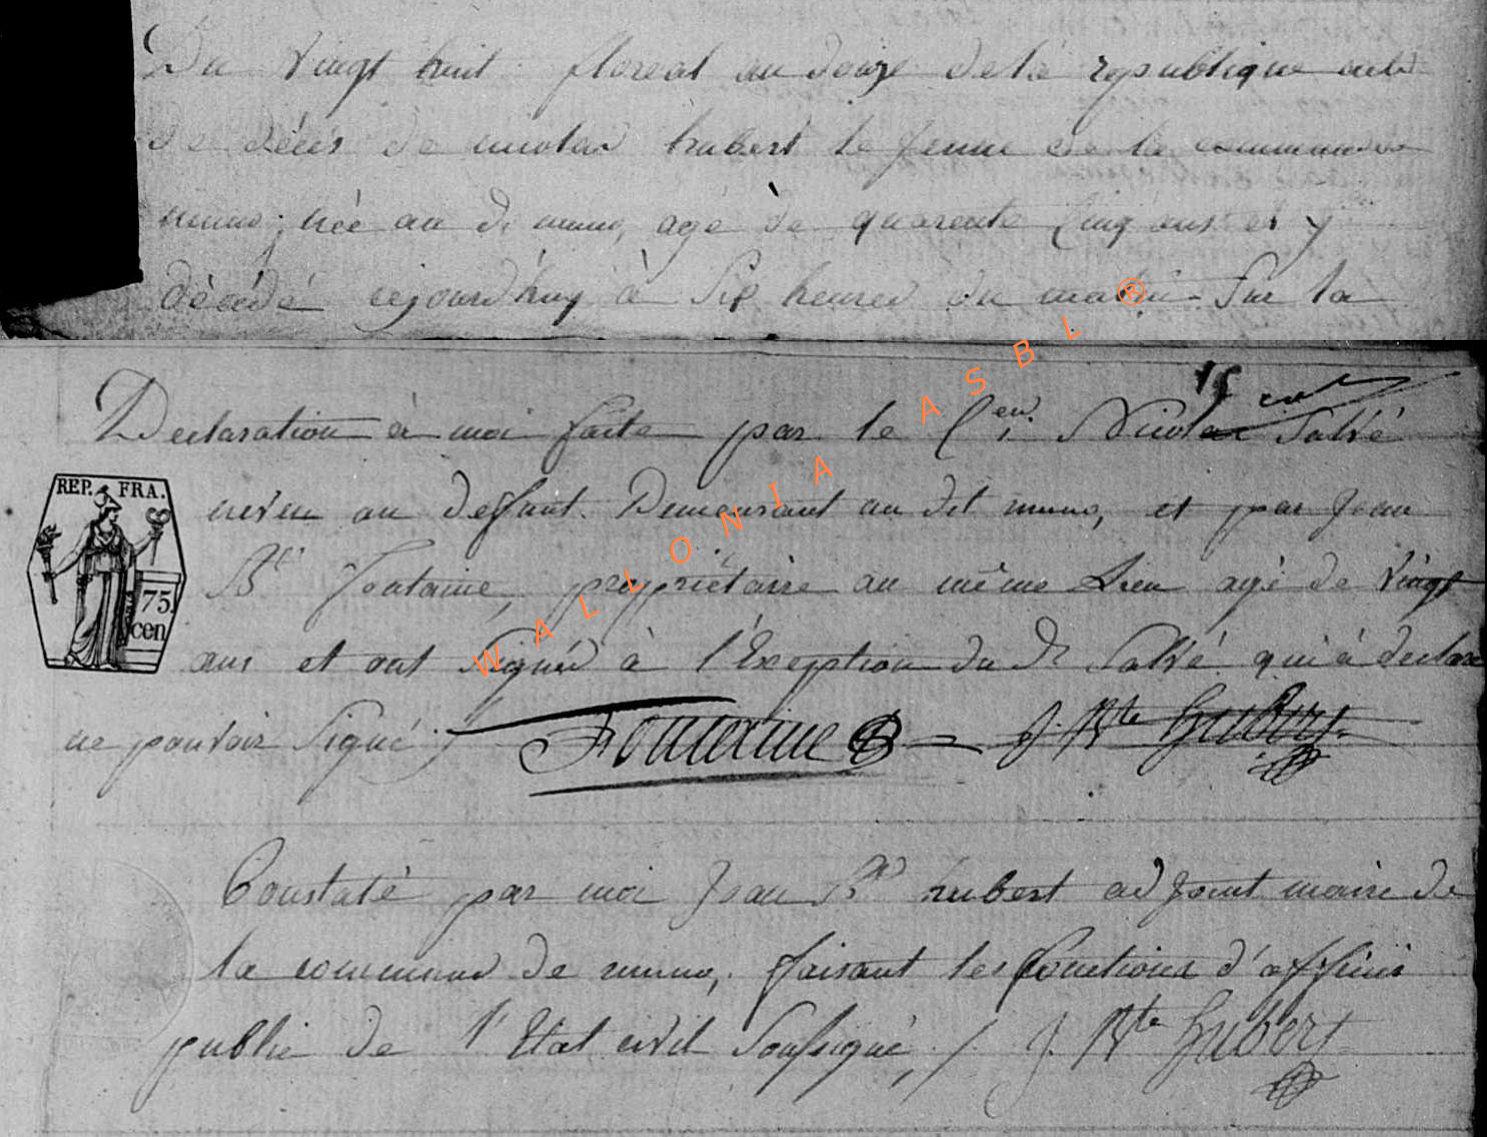 Du vingt huit floreal an douze de la republique acte
de décés de nicolas hubert le jeune de la commune de
muno; née au dt muno, agé de quarente Cinq ans et y
décédé cejourd'huy à Six heures du matin. Sur la
15
Declaration à moi faite par le Cen. Nicolas Salvé
REP. FRA.
75.
cen
neveu au deffunt. Demeurant au dit muno, et par Jean
Bte fontaine, propriétaire au même Lieu agé de vingt
ans et ont Signés à l'Exception du dt Salvé qui à declaré
ne pouvoir Signé ;/ Fontaine J. Bte Hubert
Constaté par moi Jean Bte hubert adjoint maire de
la commune de muno, faisant les fonctions d'officié
public de l'Etat civil Soussigné, / J. Bte Hubert
WALLONIA ASBL ®